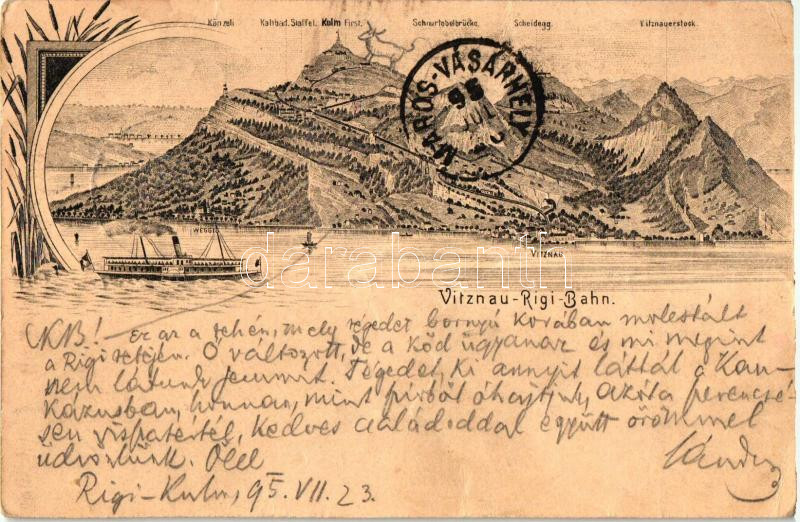 Känzeli Kaltbad. Staffel. Kulm First. Schnurtobelbrücke. Scheidegg. Vitznauerstock.
MAROS-VÁSÁRHELY
95 JUL
WEGGIS
VITZNAU
darabanth
Vitznau-Rigi-Bahn.
NB! - Ez az a tehén, mely tégedet bornyú korában molestált
a Rigi tetején. Ő változott, de a köd ugyanaz és mi megint
nem látunk semmit. Tégedet, ki annyit láttál a Kau-
kázusban, honnan, mint hirből óhajtjuk, azóta szerencsé-
sen visszatértél, kedves családoddal együtt örömmel
üdvözlünk. Ölel
Sándor
Rigi-Kulm, 95. VII. 23.